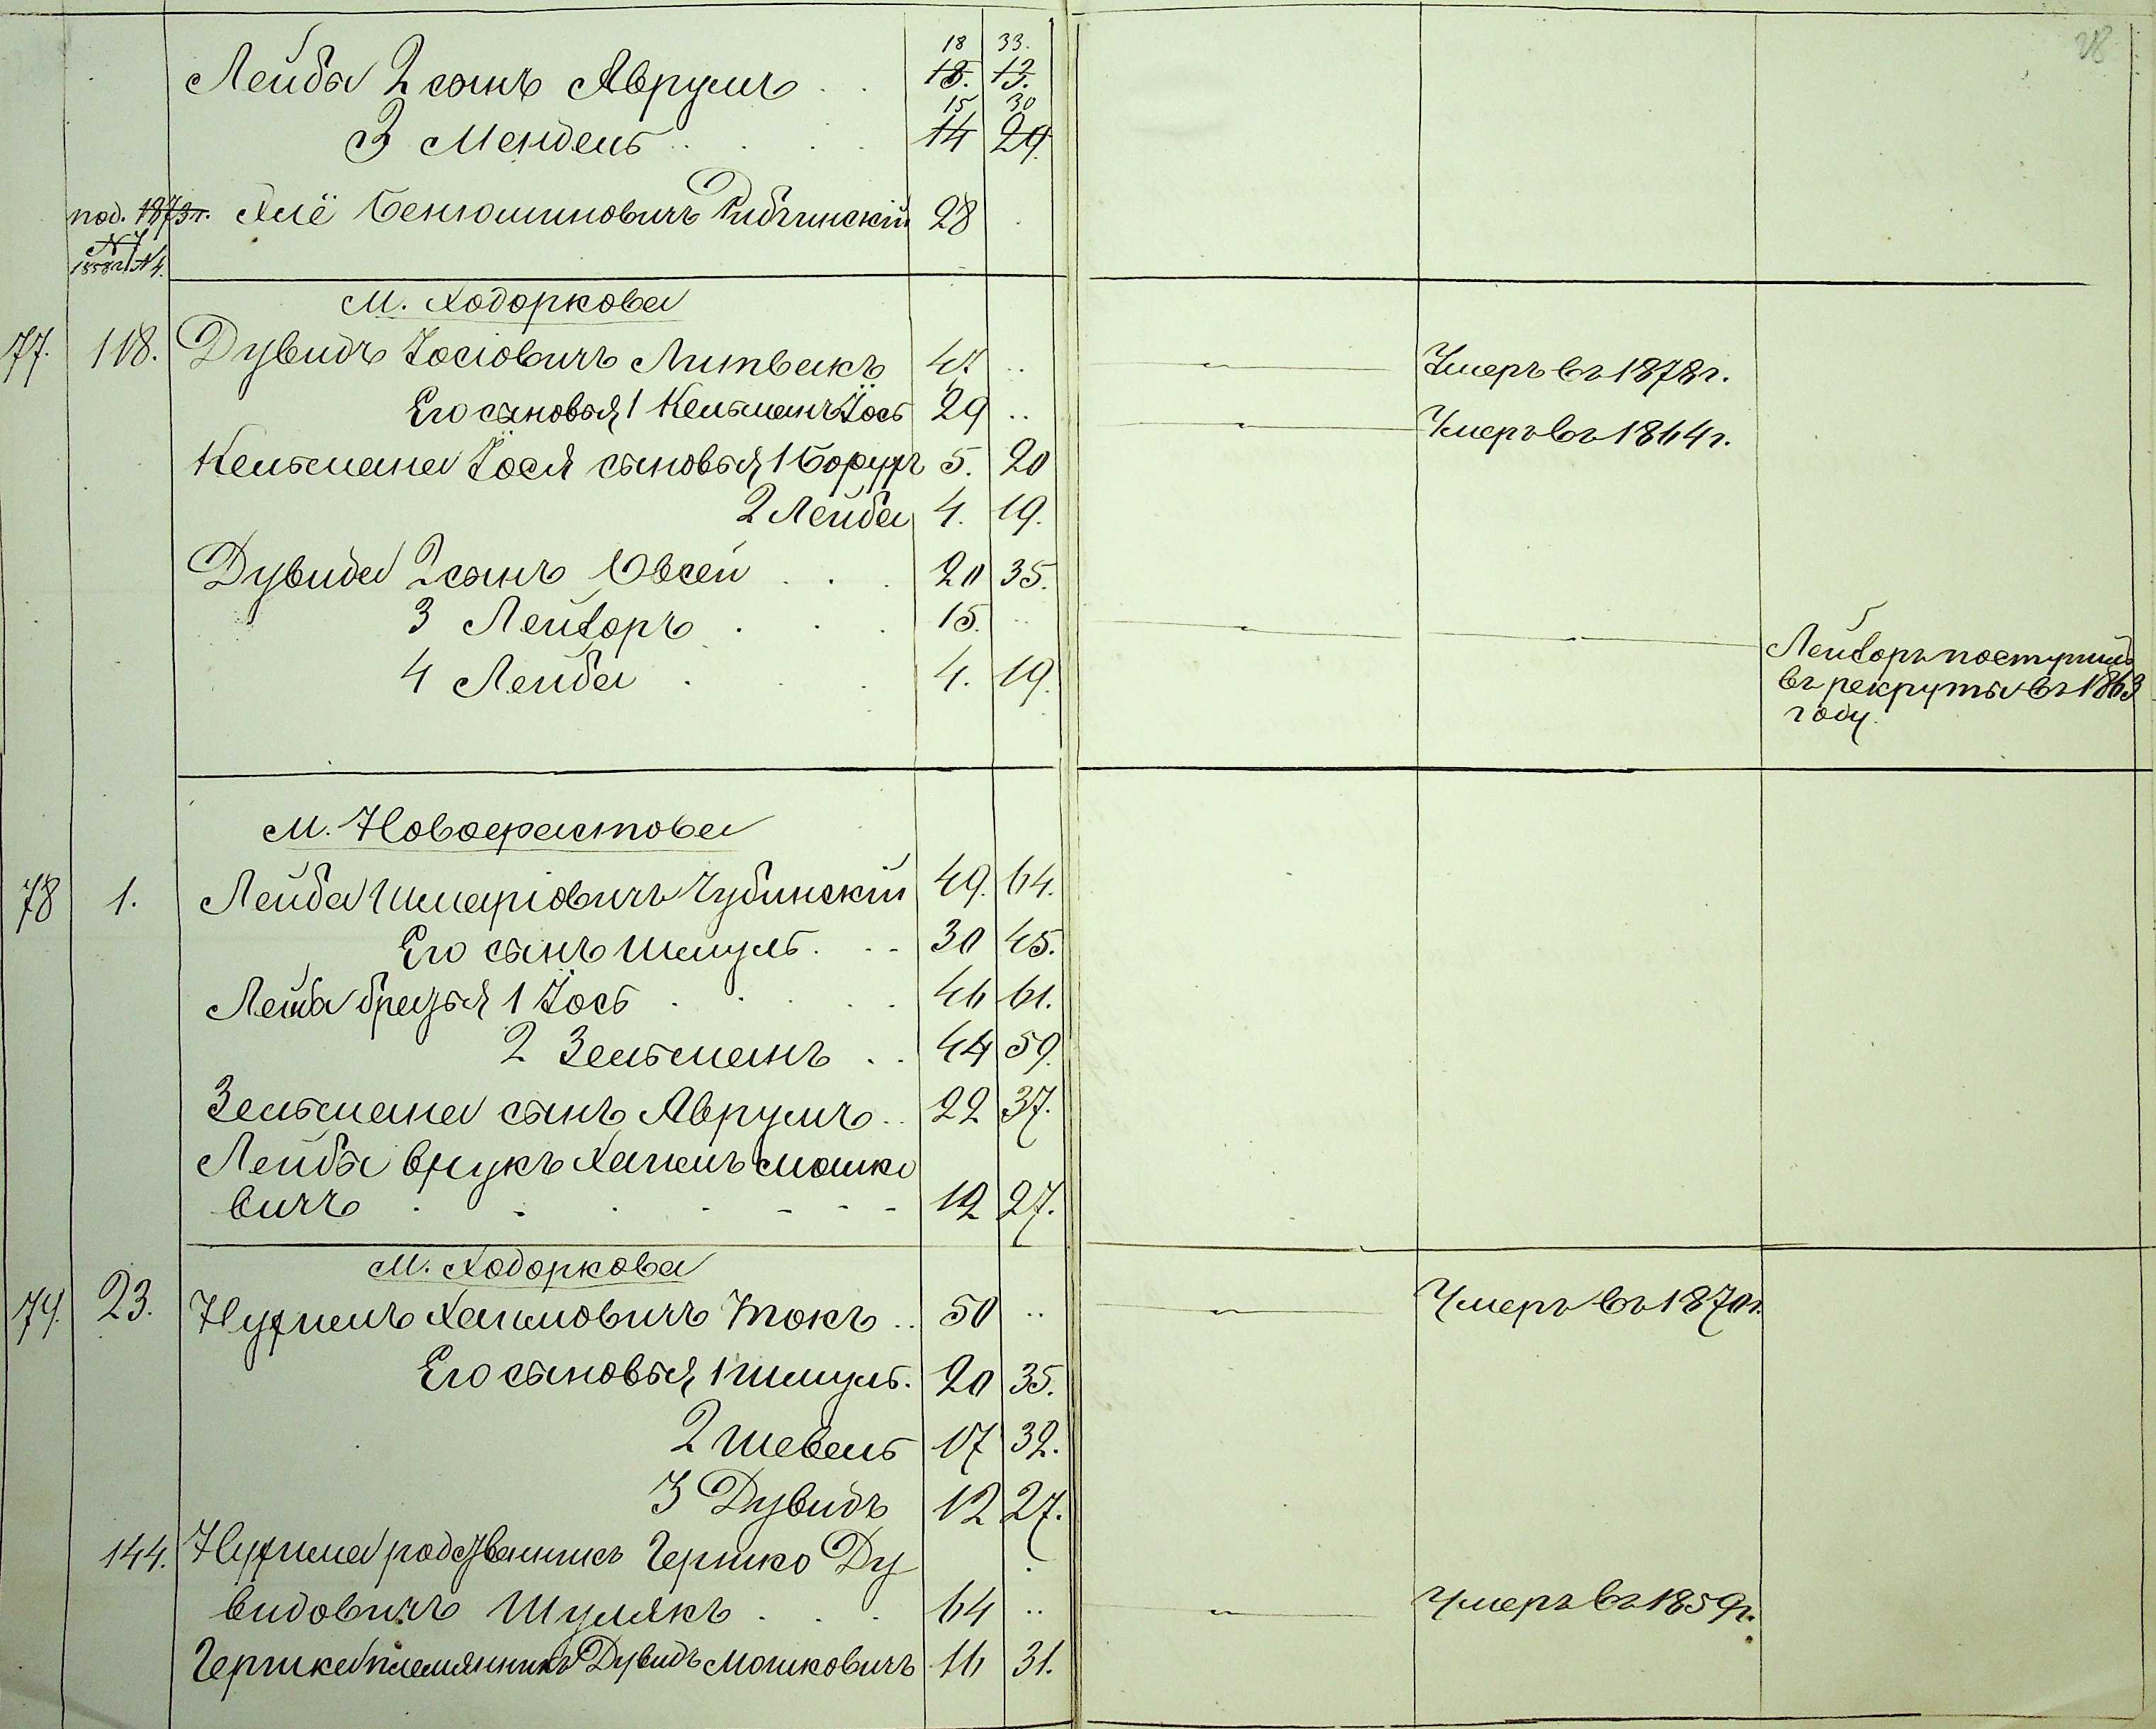 28
18 33.
Лейбы 2 сынъ Аврумъ . . 18. 13.
15 30
3 Мендель . . . . 14 29.
под. 1873 г. Хиё Бенюминовичъ 28
№ 7
1858 г. № 4.
М. Ходоркова
77. 118. Дувидъ Іосіовичъ Литвакъ 47. .. Умеръ въ 1878 г.
Его сыновья 1 Кельманъ Іось 29 .. Умеръ въ 1864 г.
Кельмана Іося сыновья 1 Борухъ 5. 20
2 Лейба 4. 19.
Дувида 2 сынъ Овсей . . . 20 35.
3 Лейзоръ . . . 15. .. Лейзоръ поступилъ
въ рекруты въ 1863
году.
4 Лейба . . . 4. 19.
М. Новофастова
78 1. Лейба Шмаріовичъ Чубинскій 49. 64.
Его сынъ Шмуль. . - 30 45.
Лейба братья 1 Іось . . . . . 46 61.
2 Зельманъ . . 44 59.
Зельмана сынъ Аврумъ . . 22 37.
Лейбы внукъ Хаимъ Мошко
вичъ . - . - - - - 12 27.
М. Ходоркова
79. 23. Нухимъ Хаимовичъ Токъ . . 50 .. Умеръ въ 1870 г.
Его сыновья 1 Шмуль. 20 35.
2 Шевель 17 32.
3 Дувидъ 12 27.
144. Нухима родственникъ Гершко Ду
видовичъ Шулякъ . . . 64 .. Умеръ въ 1859 г.
Гершка племянникъ Дувидъ Мошковичъ 16 31.